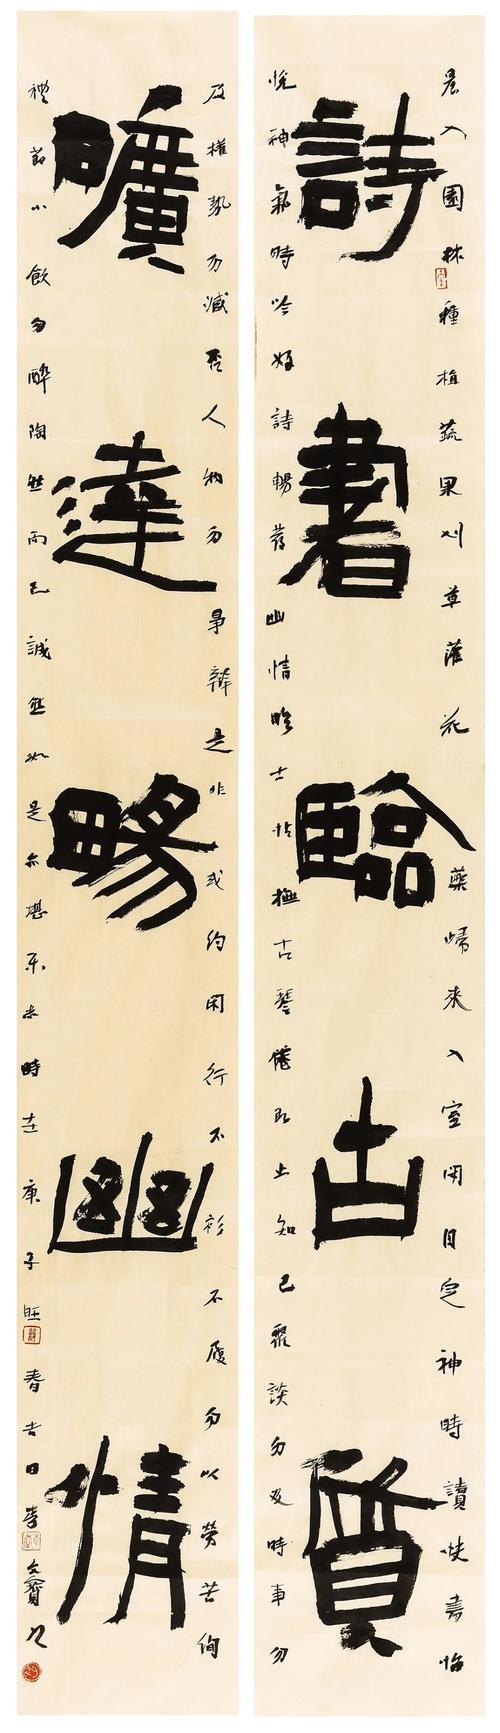 晨入園林種植蔬果刈草灌花藥歸來入室閉目定神時讀快書怡
詩書臨古質
悅神氣時吟好詩暢幽情帖撫古琴倦即止知己聚談勿及時事勿
及權勢勿臧否人物勿爭辯是非或約閑行不衫不履勿以勞苦徇
曠達畼幽情
禮節小飲勿醉陶然而已誠然如是亦堪樂志時在庚子旺春吉日李文寶